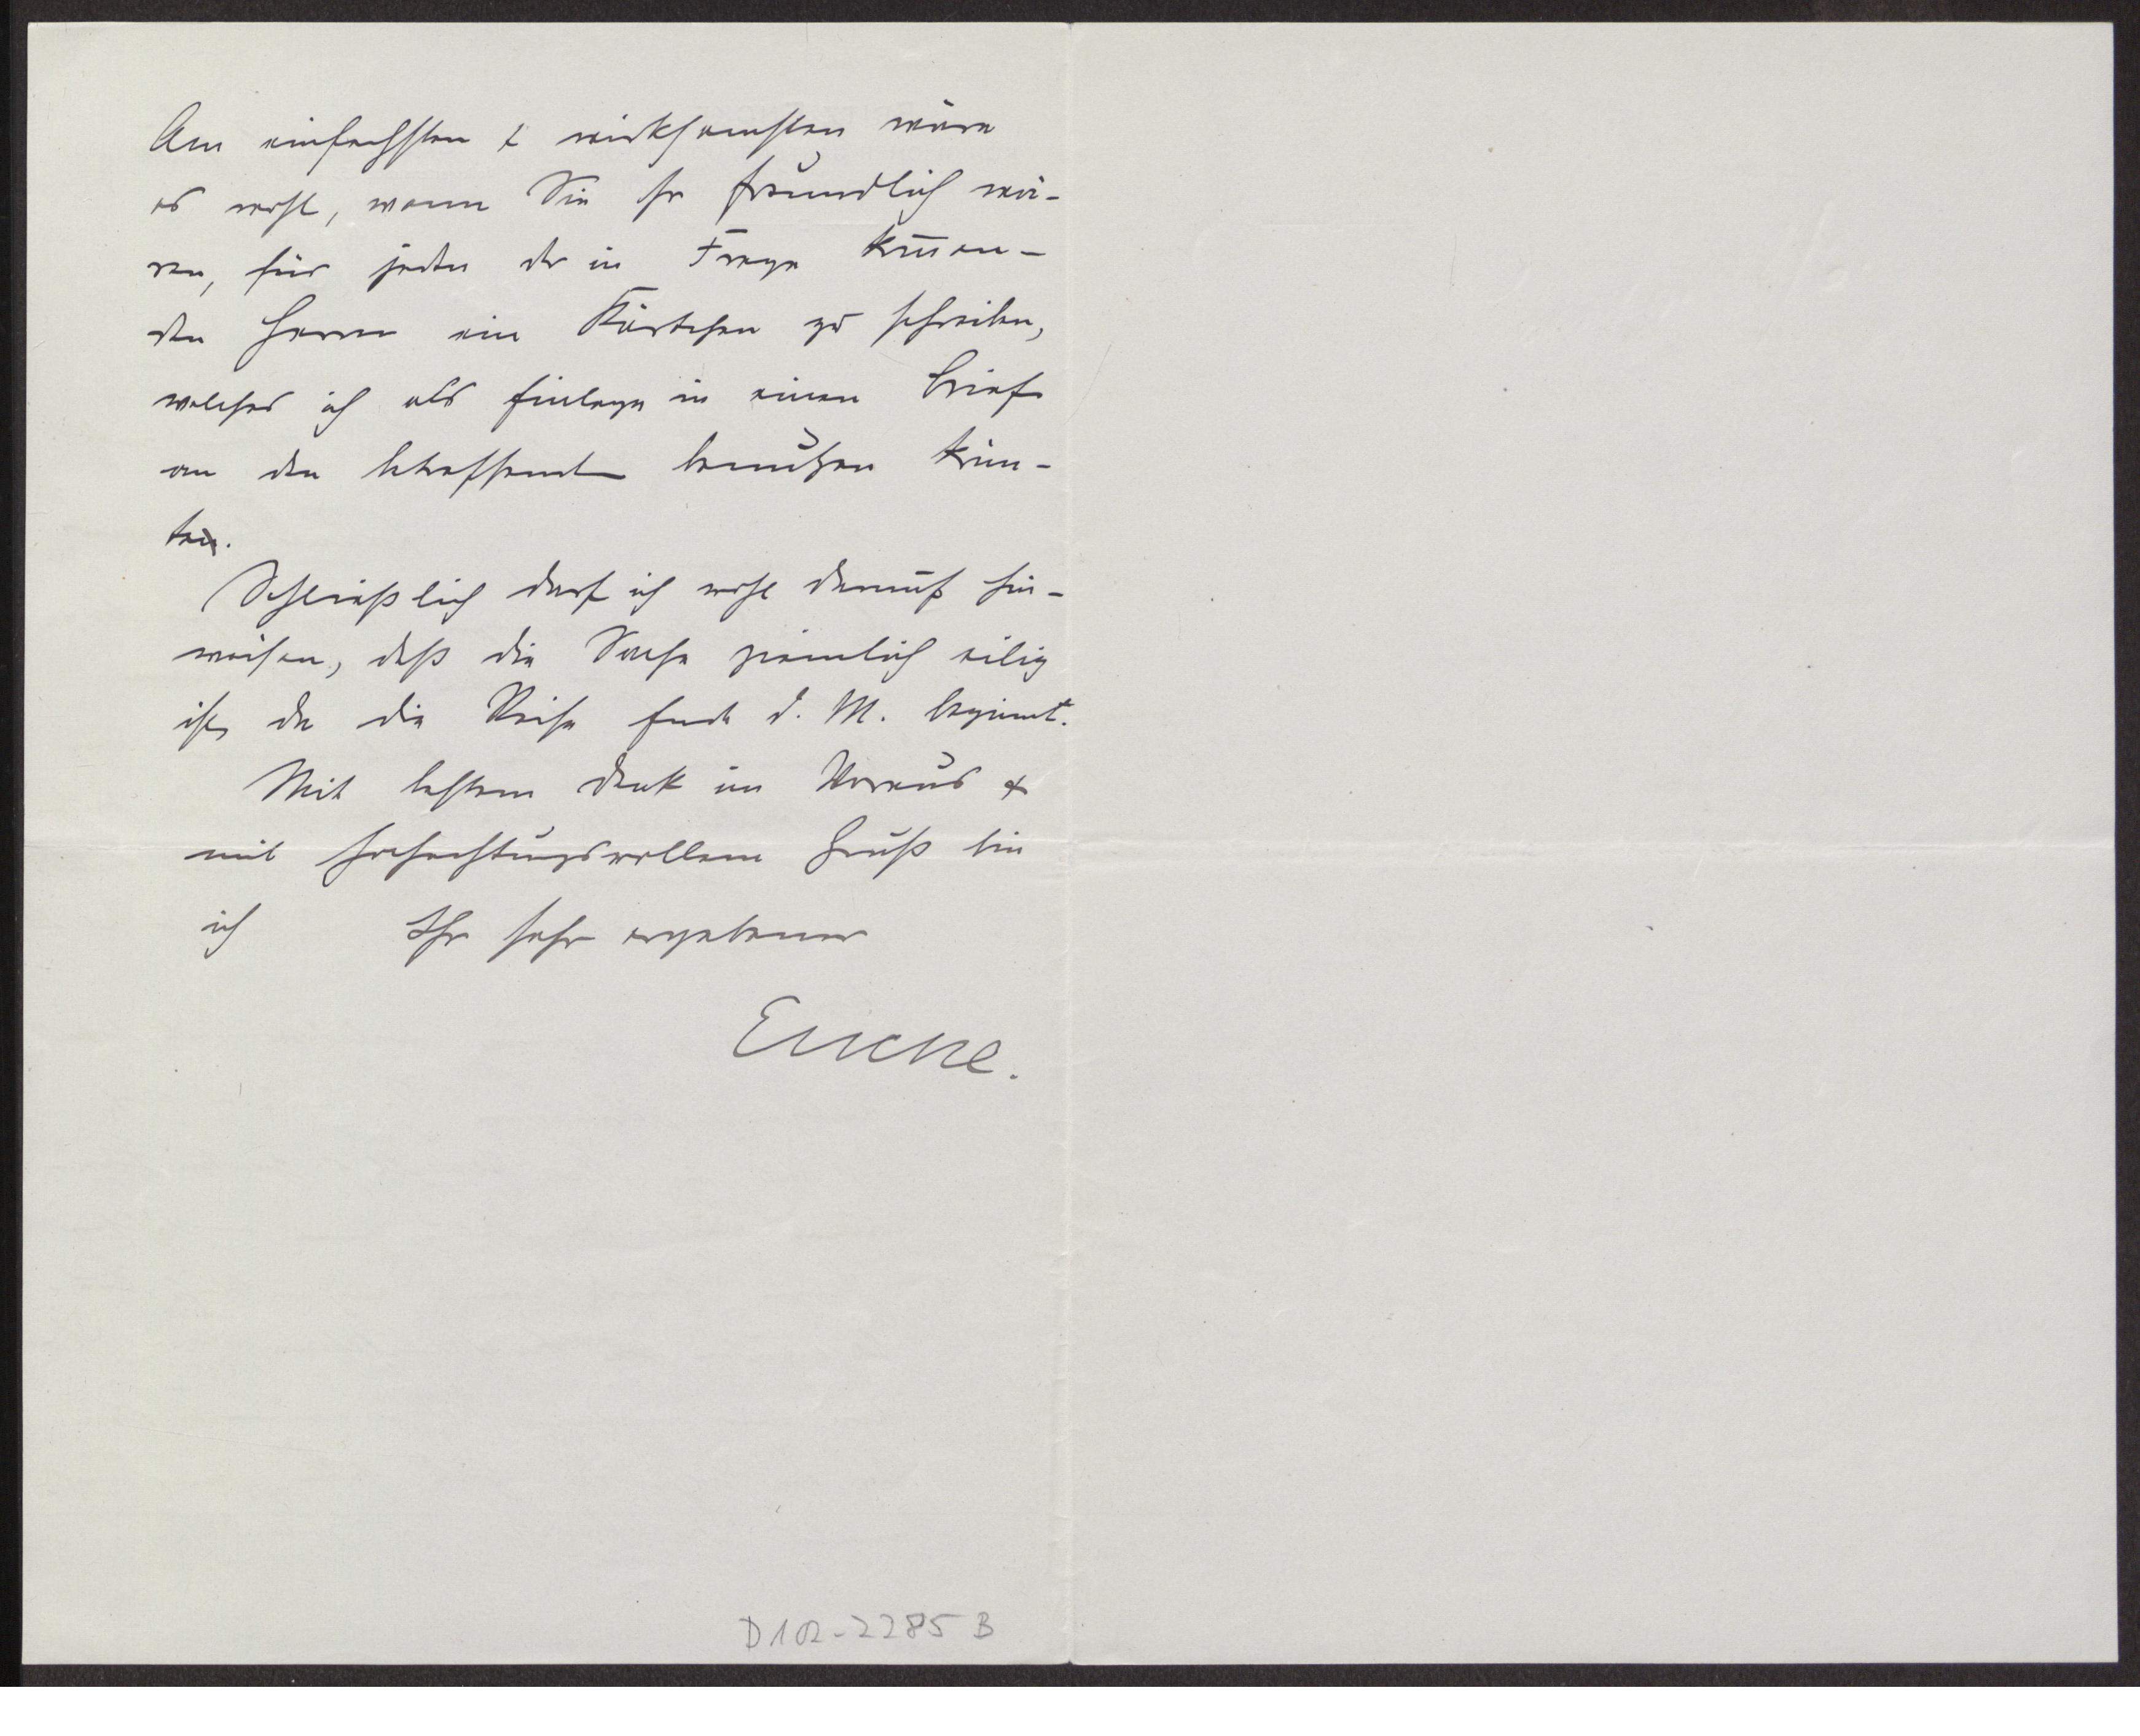 Am einfachsten & wirksamsten wäre
es wohl, wenn Sie so freundlich wä-
ren, für jeden der in Frage kom̅en-
den Herren ein Kärtchen zu schreiben,
welches ich als Einlage in einen Brief
an den betreffenden benützen kön̅-
te.
Schließlich darf ich wohl darauf hin-
weisen, daß die Sache ziemlich eilig
ist, da die Reise Ende d. M. begin̅t.
Mit bestem Dank im Voraus &
mit hochachtungsvollem Gruß bin
ich Ihr sehr ergebener
D102-2285 B